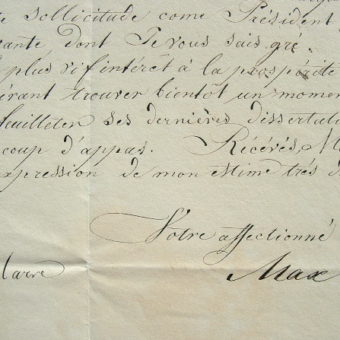 sollicitude come Président
cante, dont Je vous sais gré.
plus vif intéret à la prospérité
érant trouver bientôt un momen
feuilleter ses dernières dissertati
coup d'appas. Récévés,
xpression de mon estime trés
Votre affectionné
Max